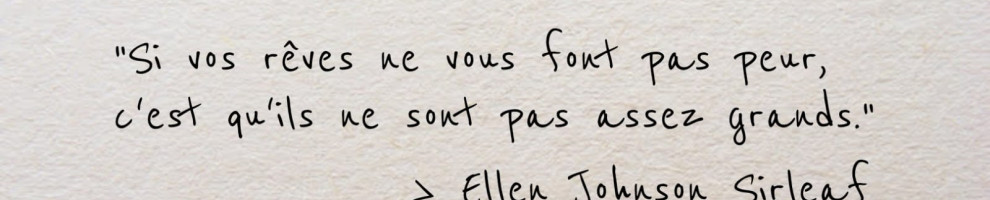 "Si vos rêves ne vous font pas peur,
c'est qu'ils ne sont pas assez grands."
> Ellen Johnson Sirleaf